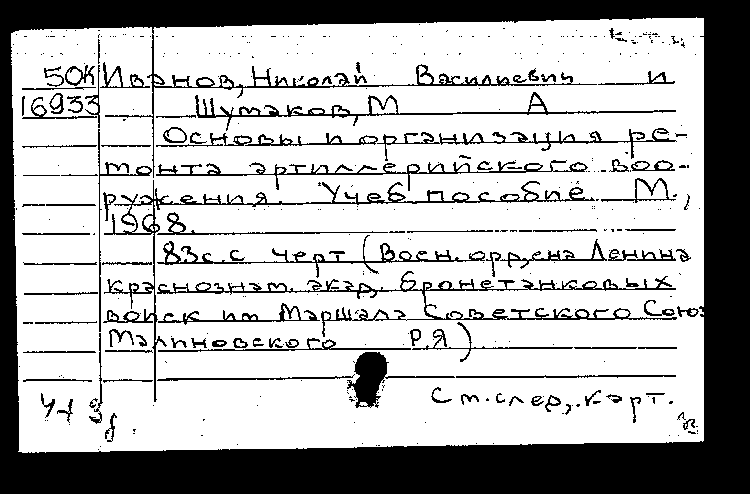 К.т.ч
50К Иванов, Николай Василиевич и
16933 Шумаков, М А
Основы и организация ре-
монта артиллерийского воо-
ружения. Учеб пособие М.,
1968.
83с. с черт (Воен. орд,ена Ленина
краснознам. акад. бронетанковых
войск им Маршала Советского Союз
Малиновского Р.Я)
Ч-1 3
См. след,. карт.